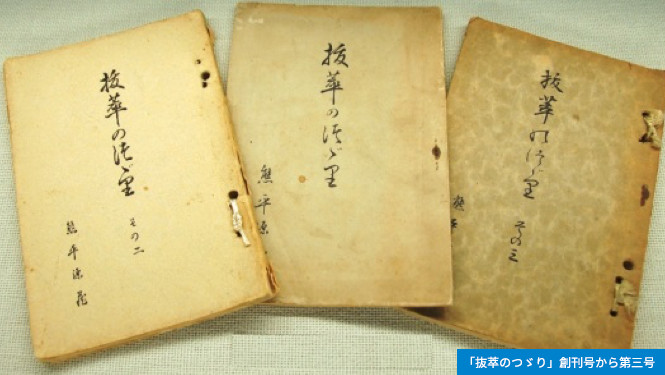 抜萃のつゞ里
その二
熊平源蔵
抜萃のつゞ里
熊平源
抜萃のつゞ里
その三
熊平
「抜萃のつゞり」創刊号から第三号